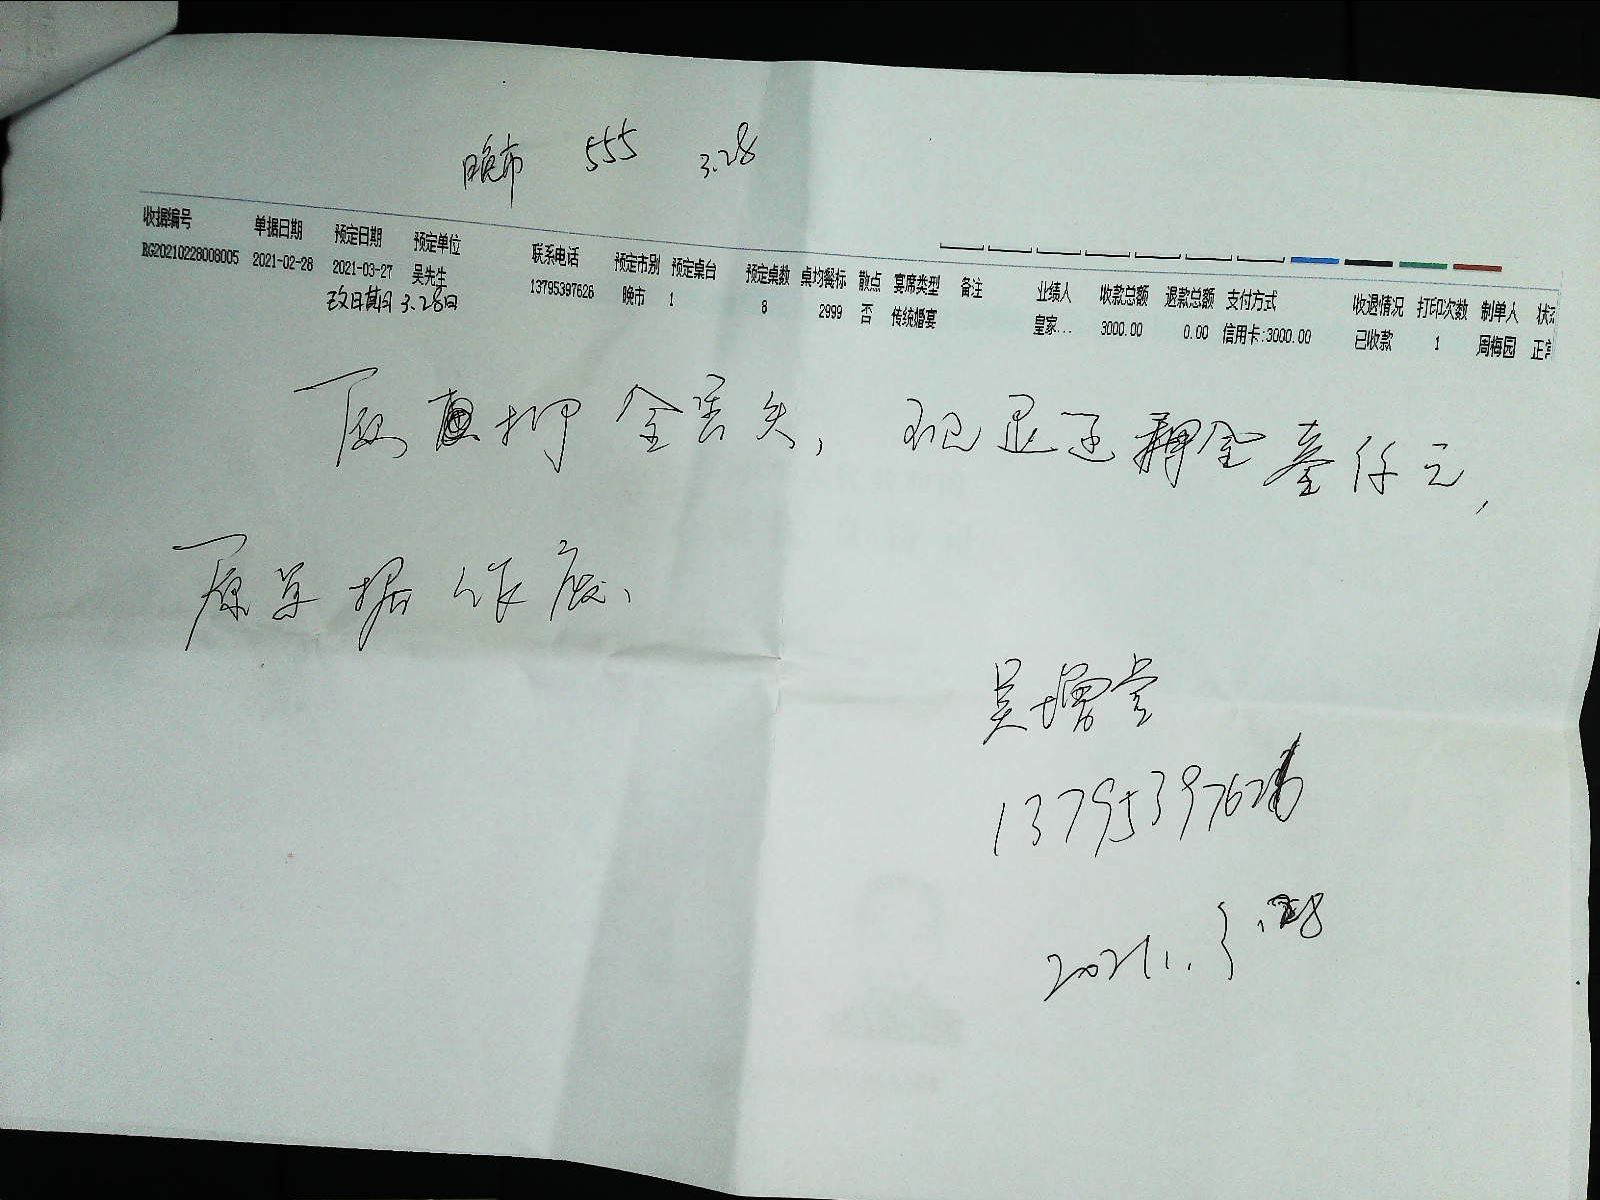 晚市 555 3.28
收据编号 单据日期 预定日期 预定单位 联系电话 预定市别 预定桌台 预定桌数 桌均餐标 散点 宴席类型 备注 业绩人 收款总额 退款总额 支付方式 收退情况 打印次数 制单人 状态
RG20210228008005 2021-02-28 2021-03-27 吴先生 13795397626 晚市 1 8 2999 否 传统婚宴 皇家... 3000.00 0.00 信用卡:3000.00 已收款 1 周梅园 正常
改日期 3.28日
原 押金丢失，现退还押金叁仟元，
原单据作废、
吴增堂
13795397626
2021.3.28